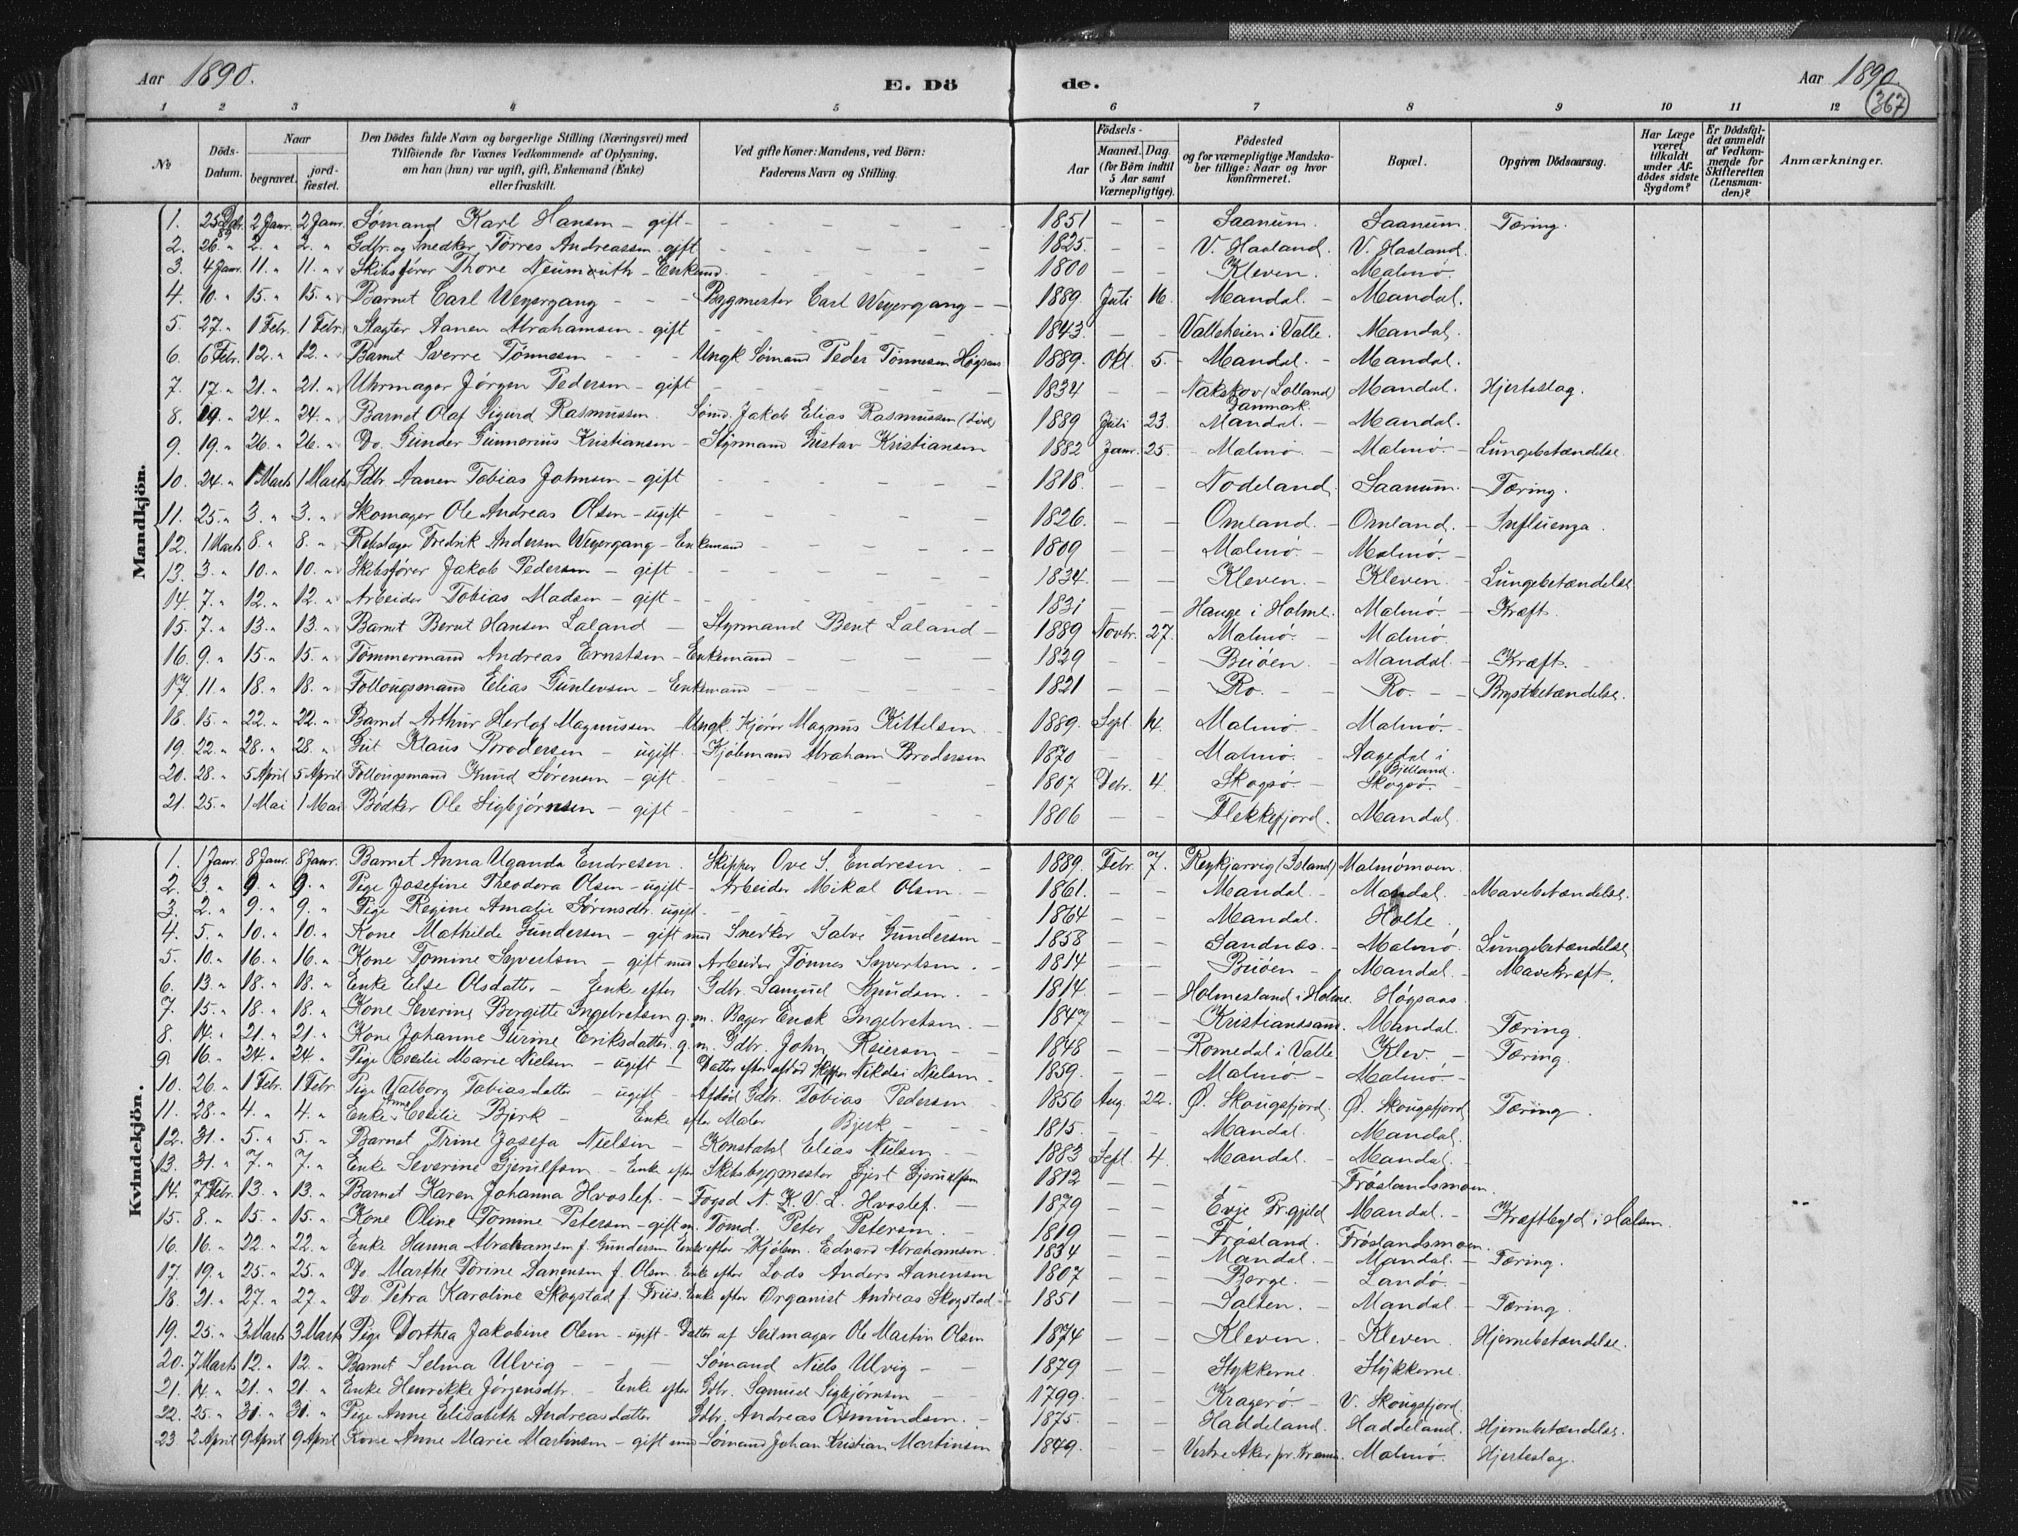 Aar 1890. E. Dö de. Aar 1890.
367
1 2 3 4 5 6 7 8 9 10 11 12
№ Döds-Datum. Naar begravet. jord-fæstet. Den Dödes fulde Navn og borgerlige Stilling (Næringsvei) med Tilföiende for Voxnes Vedkommende af Oplysning, om han (hun) var ugift, gift, Enkemand (Enke) eller fraskilt. Ved gifte Koner: Mandens, ved Börn: Faderens Navn og Stilling. Födsels- Aar Maaned. Dag. (for Börn indtil 5 Aar samt Værnepligtige). Födested og for værnepligtige Mandskaber tillige: Naar og hvor konfirmeret. Bopæl. Opgiven Dödsaarsag. Har Læge været tilkaldt under Afdödes sidste Sygdom? Er Dödsfaldet anmeldt af Vedkommende for Skifteretten (Lensmanden)? Anmærkninger.
Mandkjön.
1. 25 Dbr. 89 2 Janr. 2 Janr. Sømand Karl Hansen - gift - 1851 - - Saanum. Saanum. Tæring.
2. 26. " 2. " 2. " Gdbr. og Snedker Tørres Andreassen gift 1825. - - V. Haaland. V. Haaland.
3. 4 Janr. 11. " 11. " Skibsfører Thore Neumouth - Enkemd. 1800 - - Kleven. Malmø.
4. 10. " 15. " 15. " Barnet Carl Weyergang - - Bygmester Carl Weyergang - - 1889. Juli 16. Mandal. - Mandal.
5. 27. " 1 Febr. 1 Febr. Slagter Aanen Abrahamsen - gift 1843. - - Valleheien i Valle. Mandal.
6. 6 Febr. 12. " 12. " Barnet Sverre Tønnesen - - Ungk. Sømand Peder Tønnesen Høgsaas 1889. Okt. 5. Mandal. - Mandal.
7. 17. " 21. " 21. " Uhrmager Jørgen Pedersen - gift 1834 - - Nakskov (Lolland) Danmark. Mandal. Hjerteslag.
8. 19. " 24. " 24. " Barnet Olaf Sigurd Rasmussen. Sømd. Jakob Elias Rasmussen (død) 1889 Juli 23. Mandal. - Mandal.
9. 19. " 26. " 26. " Do. Gunder Gunnerius Kristiansen - Styrmand Gustav Kristiansen 1882 Janr. 25. - Malmø. - Malmø. - Lungebetændelse.
10. 24. " 1 Marts 1 Marts Gdbr. Aanen Tobias Johnsen - gift 1818. - - Nodeland. Saanum. - Tæring.
11. 25. " 3. " 3. " Skomager Ole Andreas Olsen - ugift 1826. - - Omland. - Omland. - Influenza.
12. 1 Marts 8. " 8. " Rebslager Fredrik Andersen Weyergang - Enkemand 1809 - - Malmø. - Malmø. -
13. 3. " 10. " 10. " Skibsfører Jakob Pedersen - gift - 1834. - - Kleven. - Kleven. - Lungebetændelse
14. 7. " 12. " 12. " Arbeider Tobias Madsen - gift - 1831 - - Hauge i Holme. Malmø. - Kræft.
15. 7. " 13. " 13. " Barnet Bernt Hansen Laland - Styrmand Bent Laland - 1889 Novbr. 27. Malmø. - Malmø.
16. 9. " 15. " 15. " Tømmermand Andreas Ernstsen - Enkemand 1829 - - Buøen. - Mandal. - Kræft.
17. 11. " 18. " 18. " Follougsmand Elias Gunlevsen - Enkemand 1821 - - Ro. - - Ro. - - Brystbetændelse.
18. 15. " 22. " 22. " Barnet Arthur Herlof Magnussen - Ungk. Kjører Magnus Kittelsen 1889. Sept. 14. Malmø - Malmø.
19. 22. " 28. " 28. " Gut Klaus Brodersen - ugift. - Kjøbmand Abraham Brodersen 1870 - - Malmø. - Aagedal i Bjelland.
20. 28. " 5 April 5 April Follougsmand Knud Sørensen - gift - 1807 Debr. 4. Skogsø. - Skogsø. -
21. 25. " 1 Mai 1 Mai Bødker Ole Sigbjørnsen - gift - 1806 - - Flekkefjord. Mandal.
Kvindekjön.
1. 1 Janr. 8 Janr. 8 Janr. Barnet Anna Uganda Endresen. Skipper Ove S. Endresen. - 1889. Febr. 7. Reykjarvig (Island) Malmømoen.
2. 3. " 9. " 9. " Pige Josefine Theodora Olsen - ugift - Arbeider Mikal Olsen. 1861. - - Mandal. - Mandal. - Mavebetændelse.
3. 2. " 9. " 9. " Pige Regine Amalie Sørensdtr. ugift - 1864 - - Mandal. Holte.
4. 5. " 10. " 10. " Kone Mathilde Gundersen - gift med Snedker Salve Gundersen - 1858 - - Sandnæs. - Malmø. Lungebetændelse
5. 10. " 16. " 16. " Kone Tomine Syvertsen - gift med Arbeider Tønnes Syvertsen. - 1814 - - Buøen - Mandal. - Mavekræft.
6. 13. " 18. " 18. " Enke Else Olsdatter - Enke efter Gdbr. Samuel Knudsen. - 1814. - - Holmesland i Holme. Høgsaas
7. 15. " 18. " 18. " Kone Severine Bergitte Ingebretsen g. m. Bager Enok Ingebretsen. - 1847 - - Kristianssand. Mandal. Tæring.
8. 14. " 21. " 21. " Kone Johanne Gurine Eriksdatter g. m. Gdbr. John Reiersen - 1848 - - Romedal i Valle Klev. - Tæring.
9. 16. " 24. " 24. " Pige Cecilie Marie Nielsen - ugift - Datter efter afdød Skipper Nikolai Nielsen. 1859. - - Malmø. - Malmø. -
10. 26. " 1 Febr. 1 Febr. Pige Valborg Tobiasdatter - ugift - Afdød Gdbr. Tobias Pedersen - 1856 Aug. 22. Ø. Skougsfjord. Ø. Skougsfjord. Tæring.
11. 28. " 4. " 4. " Enke Anne Cecilie Bjerk - Enke efter Maler Bjerk - 1815. - - Mandal. Mandal.
12. 31. " 5. " 5. " Barnet Trine Josefa Nielsen - Konstabel Elias Nielsen. 1883 Sept. 4. Mandal. - Mandal. -
13. 31. " 7. " 7. " Enke Severine Gjerulfsen - Enke efter Skibsbygmester Gjert Gjerulfsen 1812 - - - Frøslandsmoen.
14. 7 Febr. 13. " 13. " Barnet Karen Johanna Hvoslef. - Fogd N. K. V. L. Hvoslef. - 1879 - - Evje Pr.gjeld Mandal. -
15. 8. " 15. " 15. " Kone Oline Tomine Petersen - gift m. Tømd. Peter Petersen. 1819 - - Frøsland. Frøslandsmoen. Kræftbyld i Halsen.
16. 16. " 22. " 22. " Enke Hanna Abrahamsen f. Gundersen Enke efter Kjøbm. Edvard Abrahamsen. 1834 - - Mandal. Mandal. - Tæring.
17. 19. " 25. " 25. " Do. Marthe Torine Aanensen f. Olsen. Enke efter Lods Anders Aanensen 1807 - - Berge. - Landø. -
18. 21. " 27. " 27. " Do. Petra Karoline Skogstad f. Friis. Enke efter Organist Andreas Skogstad - 1851 - - Salten. - Mandal. - Tæring.
19. 25. " 3 Marts 3 Marts Pige Dorthea Jakobine Olsen - ugift - Datter af Seilmager Ole Martin Olsen 1874 - - Kleven. - Kleven Hjernebetændelse.
20. 7 Marts 12. " 12. " Barnet Selma Ulvig - - - Sømand Niels Ulvig - - 1879 - - Stykkerne Stykkerne.
21. 14. " 21. " 21. " Enke Henrikke Jørgensdtr. - Enke efter Gdbr. Samuel Sigbjørnsen - - 1799. - - Kragerø - V. Skougsfjord.
22. 25. " 31. " 31. " Pige Anne Elisabeth Andreasdatter Gdbr. Andreas Osmundsen. - 1875. - - Haddeland. Haddeland. Hjernebetændelse.
23. 2 April 9 April 9 April Kone Anne Marie Martinsen - gift med Sømand Johan Kristian Martinsen 1849. - - Vestre Aker pr. Malmø. Hjerteslag.